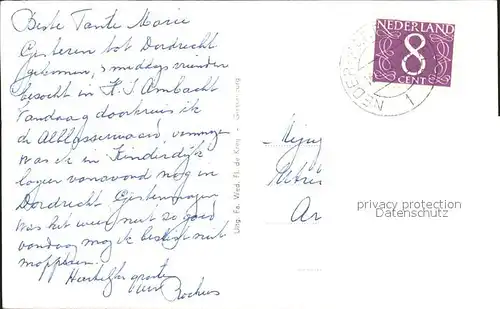 Beste Tante Marie
Gisteren tot Dordrecht
gekomen, 's middags vrienden
bezocht in H. I. Ambacht
Vandaag doorkruis ik
de Alblasserwaard,
Was ik in Kinderdijk
logeer vanavond nog in
Dordrecht
was het weer niet zo goed
vandaag mag ik beslist niet
mopperen.
Hartelijke groeten
Uitg. Fa. Wed. Fl. de Kreij - Gr
NEDER
1
NEDERLAND
8
CENT
Ar
privacy protection
Datenschutz